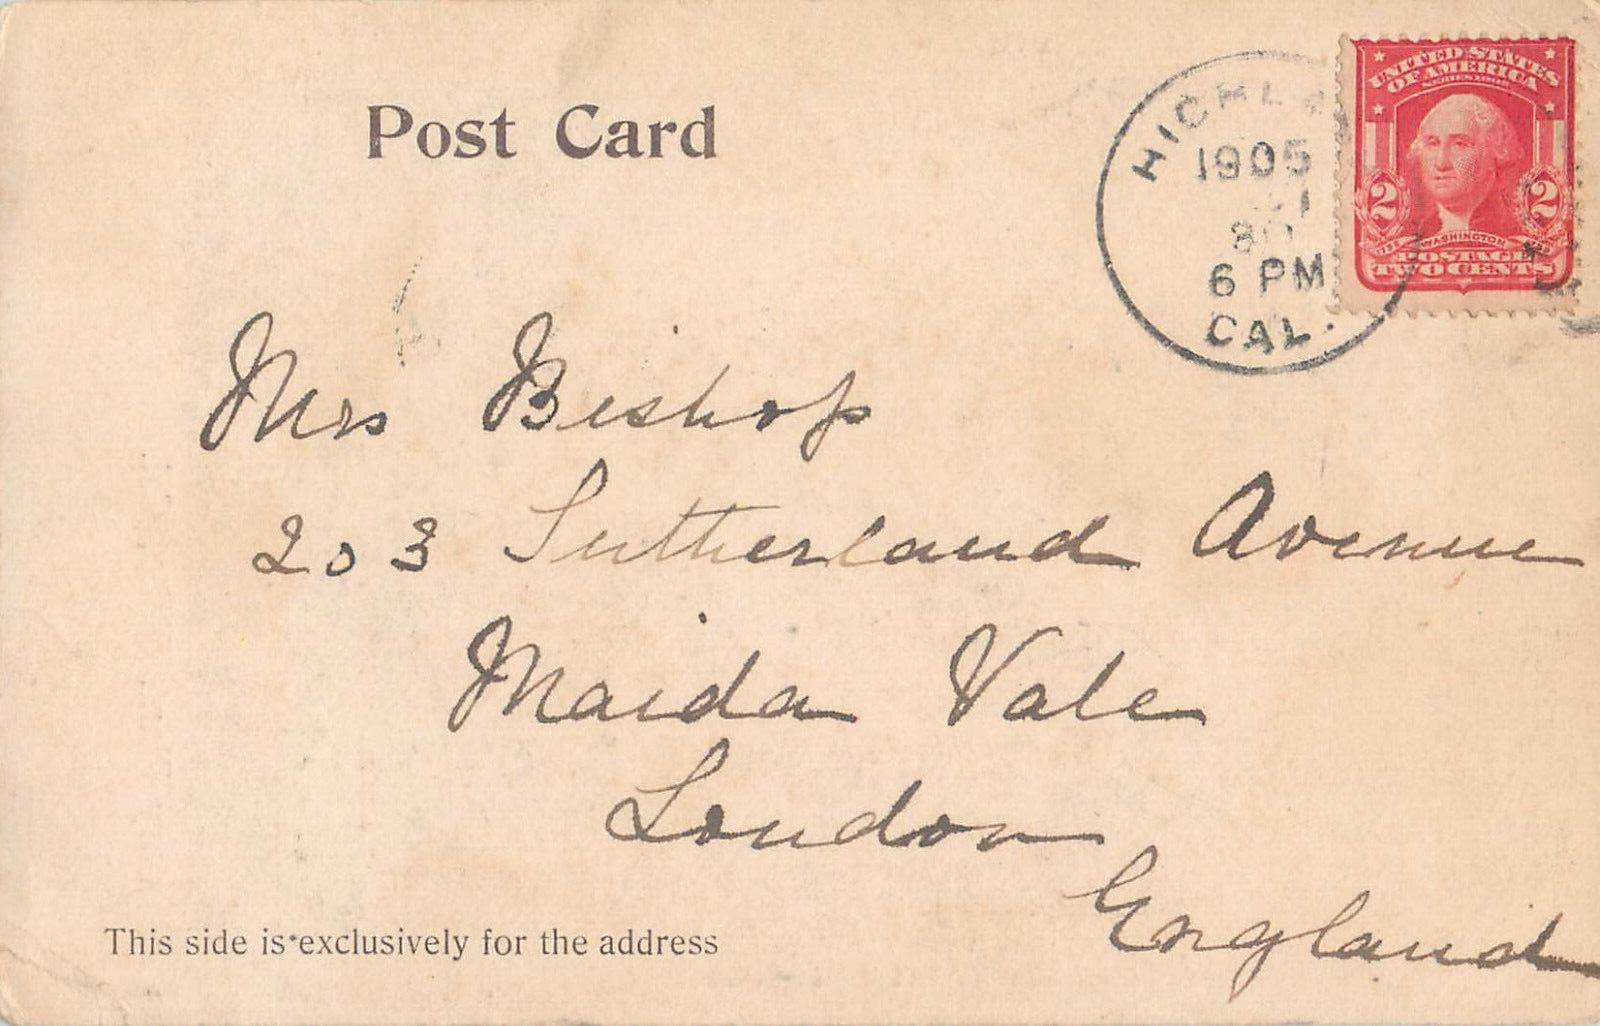 Post Card
1905
6 PM
CAL.
UNITED STATES
OF AMERICA
SERIES 1902
2 2
WASHINGTON
POSTAGE
TWO CENTS
Mrs Bishop
203 Sutherland Avenue
Maida Vale
London
England
This side is exclusively for the address